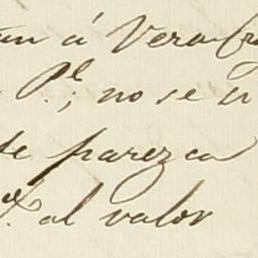 án á Vera
P.l; no se
te parezca
al valor